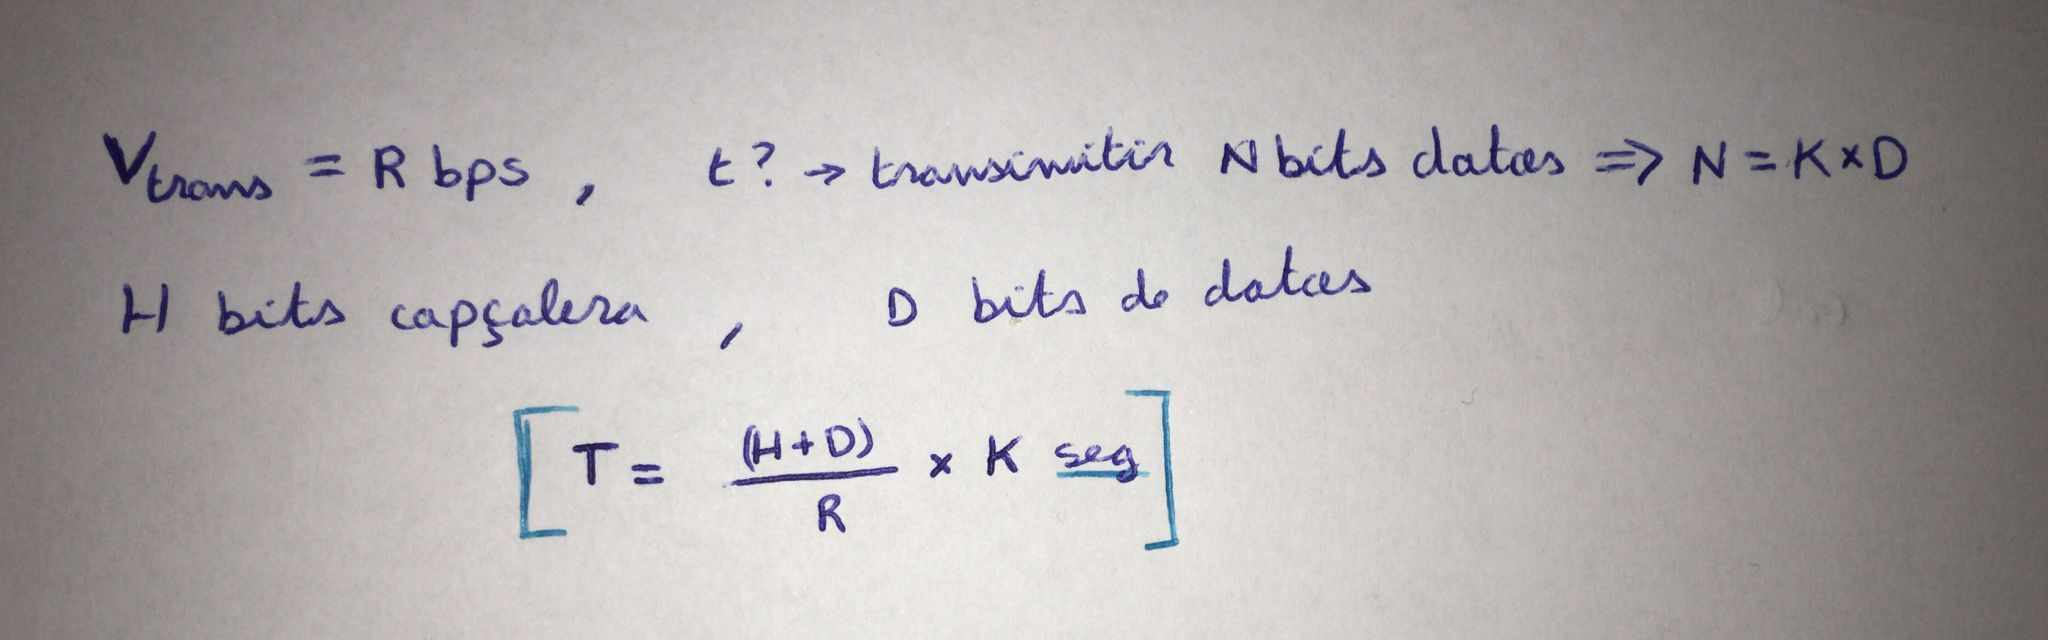 Vtrans = R bps, t? → transimitir N bits dades => N = K×D
H bits capçalera, D bits de dades
[T = (H+D)/R × K seg]